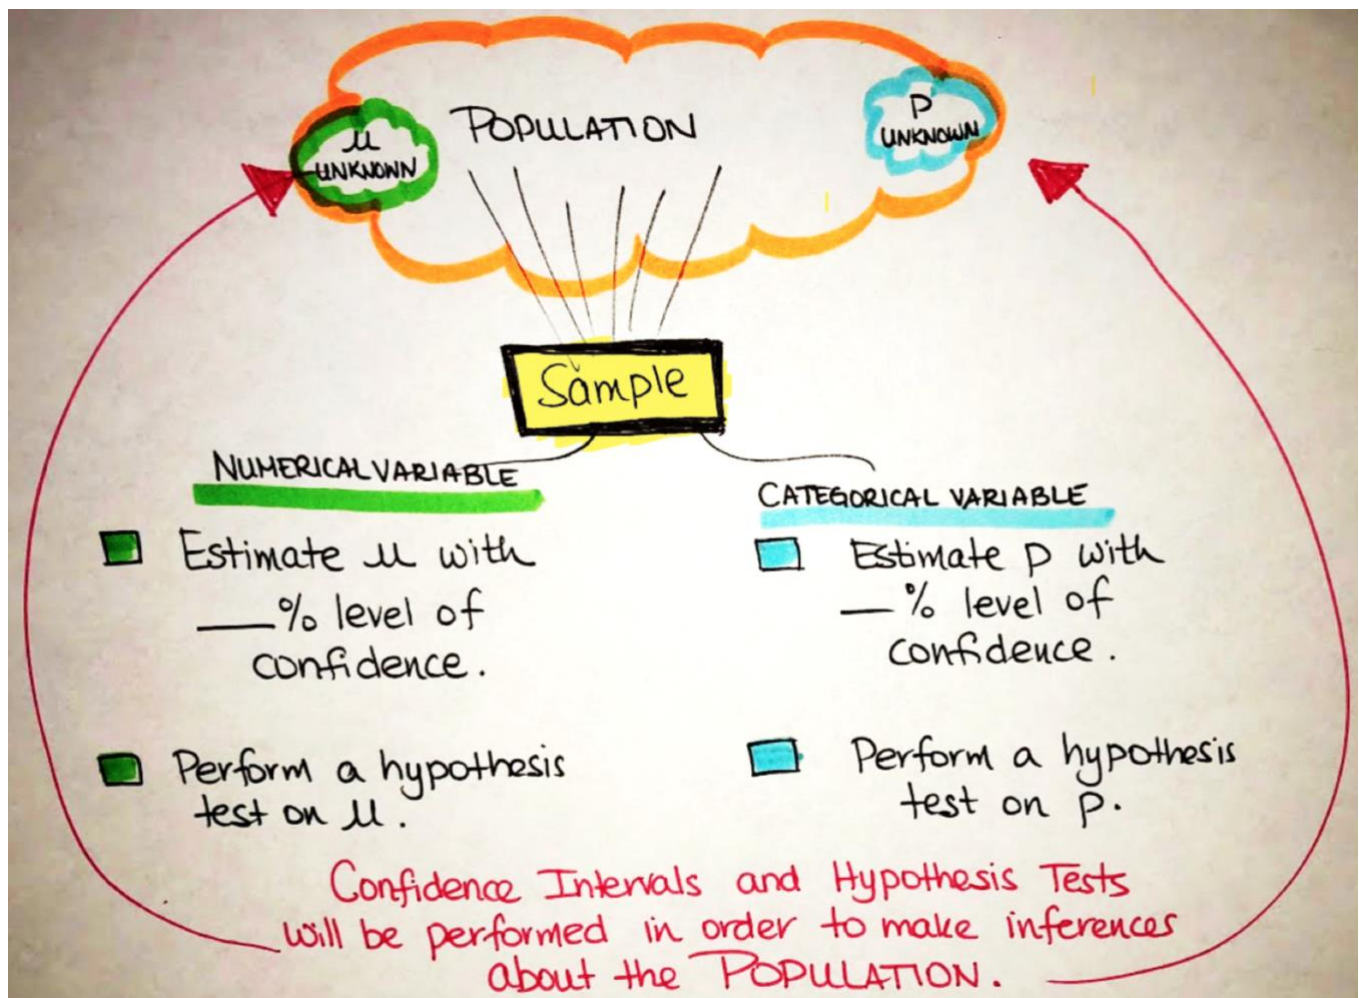 POPULATION
μ
UNKNOWN
P
UNKNOWN
Sample
NUMERICAL VARIABLE
Estimate μ with
___% level of
confidence.
Perform a hypothesis
test on μ.
CATEGORICAL VARIABLE
Estimate p with
__% level of
confidence.
Perform a hypothesis
test on p.
Confidence Intervals and Hypothesis Tests
will be performed in order to make inferences
about the POPULATION.